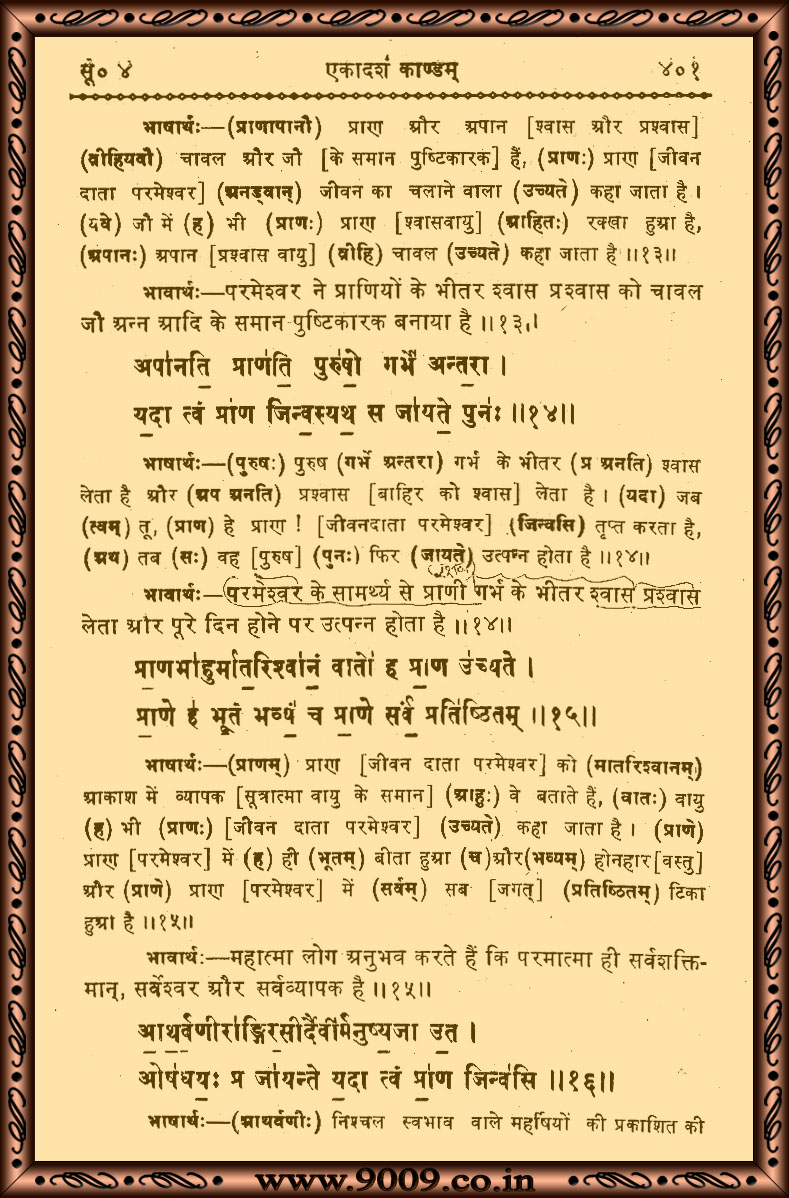 सू० ४ एकादशं काण्डम् ४०१
भाषार्थः—(प्राणापानौ) प्राण और अपान [श्वास और प्रश्वास]
(व्रीहियवौ) चावल और जौ [के समान पुष्टिकारक] हैं, (प्राणः) प्राण [जीवन
दाता परमेश्वर] (अनड्वान्) जीवन का चलाने वाला (उच्यते) कहा जाता है ।
(यवे) जौ में (ह) भी (प्राणः) प्राण [श्वासवायु] (आहितः) रक्खा हुआ है,
(अपानः) अपान [प्रश्वास वायु] (व्रीहि) चावल (उच्यते) कहा जाता है ॥१३॥
भावार्थः—परमेश्वर ने प्राणियों के भीतर श्वास प्रश्वास को चावल
जौ अन्न आदि के समान पुष्टिकारक बनाया है ॥१३॥
अपा॑नति॒ प्राण॑ति॒ पुरु॑षो॒ गर्भे॑ अन्त॒रा ।
य॒दा त्वं प्रा॑ण जिन्व॒स्यथ॒ स जा॑यते॒ पुनः॑ ॥१४॥
भाषार्थः—(पुरुषः) पुरुष (गर्भे अन्तरा) गर्भ के भीतर (प्र अनति) श्वास
लेता है और (अप अनति) प्रश्वास [बाहिर को श्वास] लेता है । (यदा) जब
(त्वम्) तू, (प्राण) हे प्राण ! [जीवनदाता परमेश्वर] (जिन्वसि) तृप्त करता है,
(अथ) तब (सः) वह [पुरुष] (पुनः) फिर (जायते) उत्पन्न होता है ॥१४॥
भावार्थः—परमेश्वर के सामर्थ्य से प्राणी गर्भ के भीतर श्वास प्रश्वास
लेता और पूरे दिन होने पर उत्पन्न होता है ॥१४॥
प्रा॒णमा॑हुर्मात॒रिश्वा॑नं॒ वातो॑ ह प्रा॒ण उ॑च्यते ।
प्रा॒णे ह॑ भू॒तं भव्यं॑ च प्रा॒णे सर्वं॒ प्रति॑ष्ठितम् ॥१५॥
भाषार्थः—(प्राणम्) प्राण [जीवन दाता परमेश्वर] को (मातरिश्वानम्)
आकाश में व्यापक [सूत्रात्मा वायु के समान] (आहुः) वे बताते हैं, (वातः) वायु
(ह) भी (प्राणः) [जीवन दाता परमेश्वर] (उच्यते) कहा जाता है । (प्राणे)
प्राण [परमेश्वर] में (ह) ही (भूतम्) बीता हुआ (च)और(भव्यम्) होनहार[वस्तु]
और (प्राणे) प्राण [परमेश्वर] में (सर्वम्) सब [जगत्] (प्रतिष्ठितम्) टिका
हुआ है ॥१५॥
भावार्थः—महात्मा लोग अनुभव करते हैं कि परमात्मा ही सर्वशक्ति-
मान्, सर्वेश्वर और सर्वव्यापक है ॥१५॥
आ॒थ॒र्व॒णीरा॑ङ्गिर॒सीर्दैवी॑र्मनुष्य॒जा उ॒त ।
ओष॑धयः॒ प्र जा॑यन्ते य॒दा त्वं प्रा॑ण॒ जिन्व॑सि ॥१६॥
भाषार्थः—(आथर्वणीः) निश्चल स्वभाव वाले महर्षियों की प्रकाशित की
www.9009.co.in